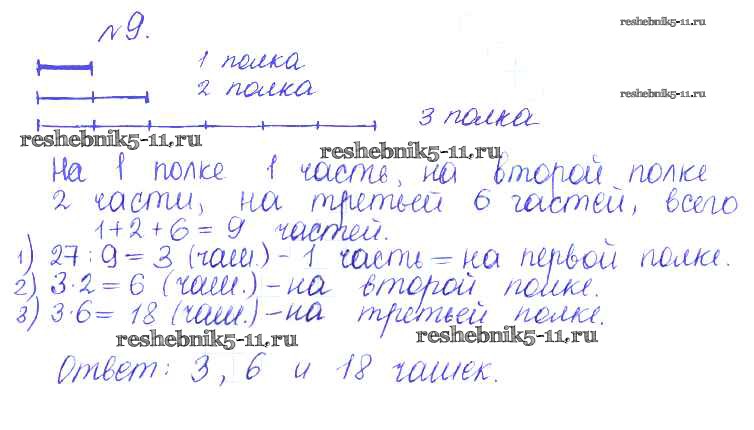 №9.
reshebnik5-11.ru
1 полка
2 полка
reshebnik5-11.ru
3 полка
reshebnik5-11.ru
reshebnik5-11.ru
На 1 полке 1 часть, на второй полке
2 части, на третьей 6 частей, всего
1+2+6=9 частей.
1) 27:9=3 (чаш.) - 1 часть = на первой полке.
2) 3·2=6 (чаш.) - на второй полке.
3) 3·6=18 (чаш.) - на третьей полке.
reshebnik5-11.ru
reshebnik5-11.ru
Ответ: 3, 6 и 18 чашек.